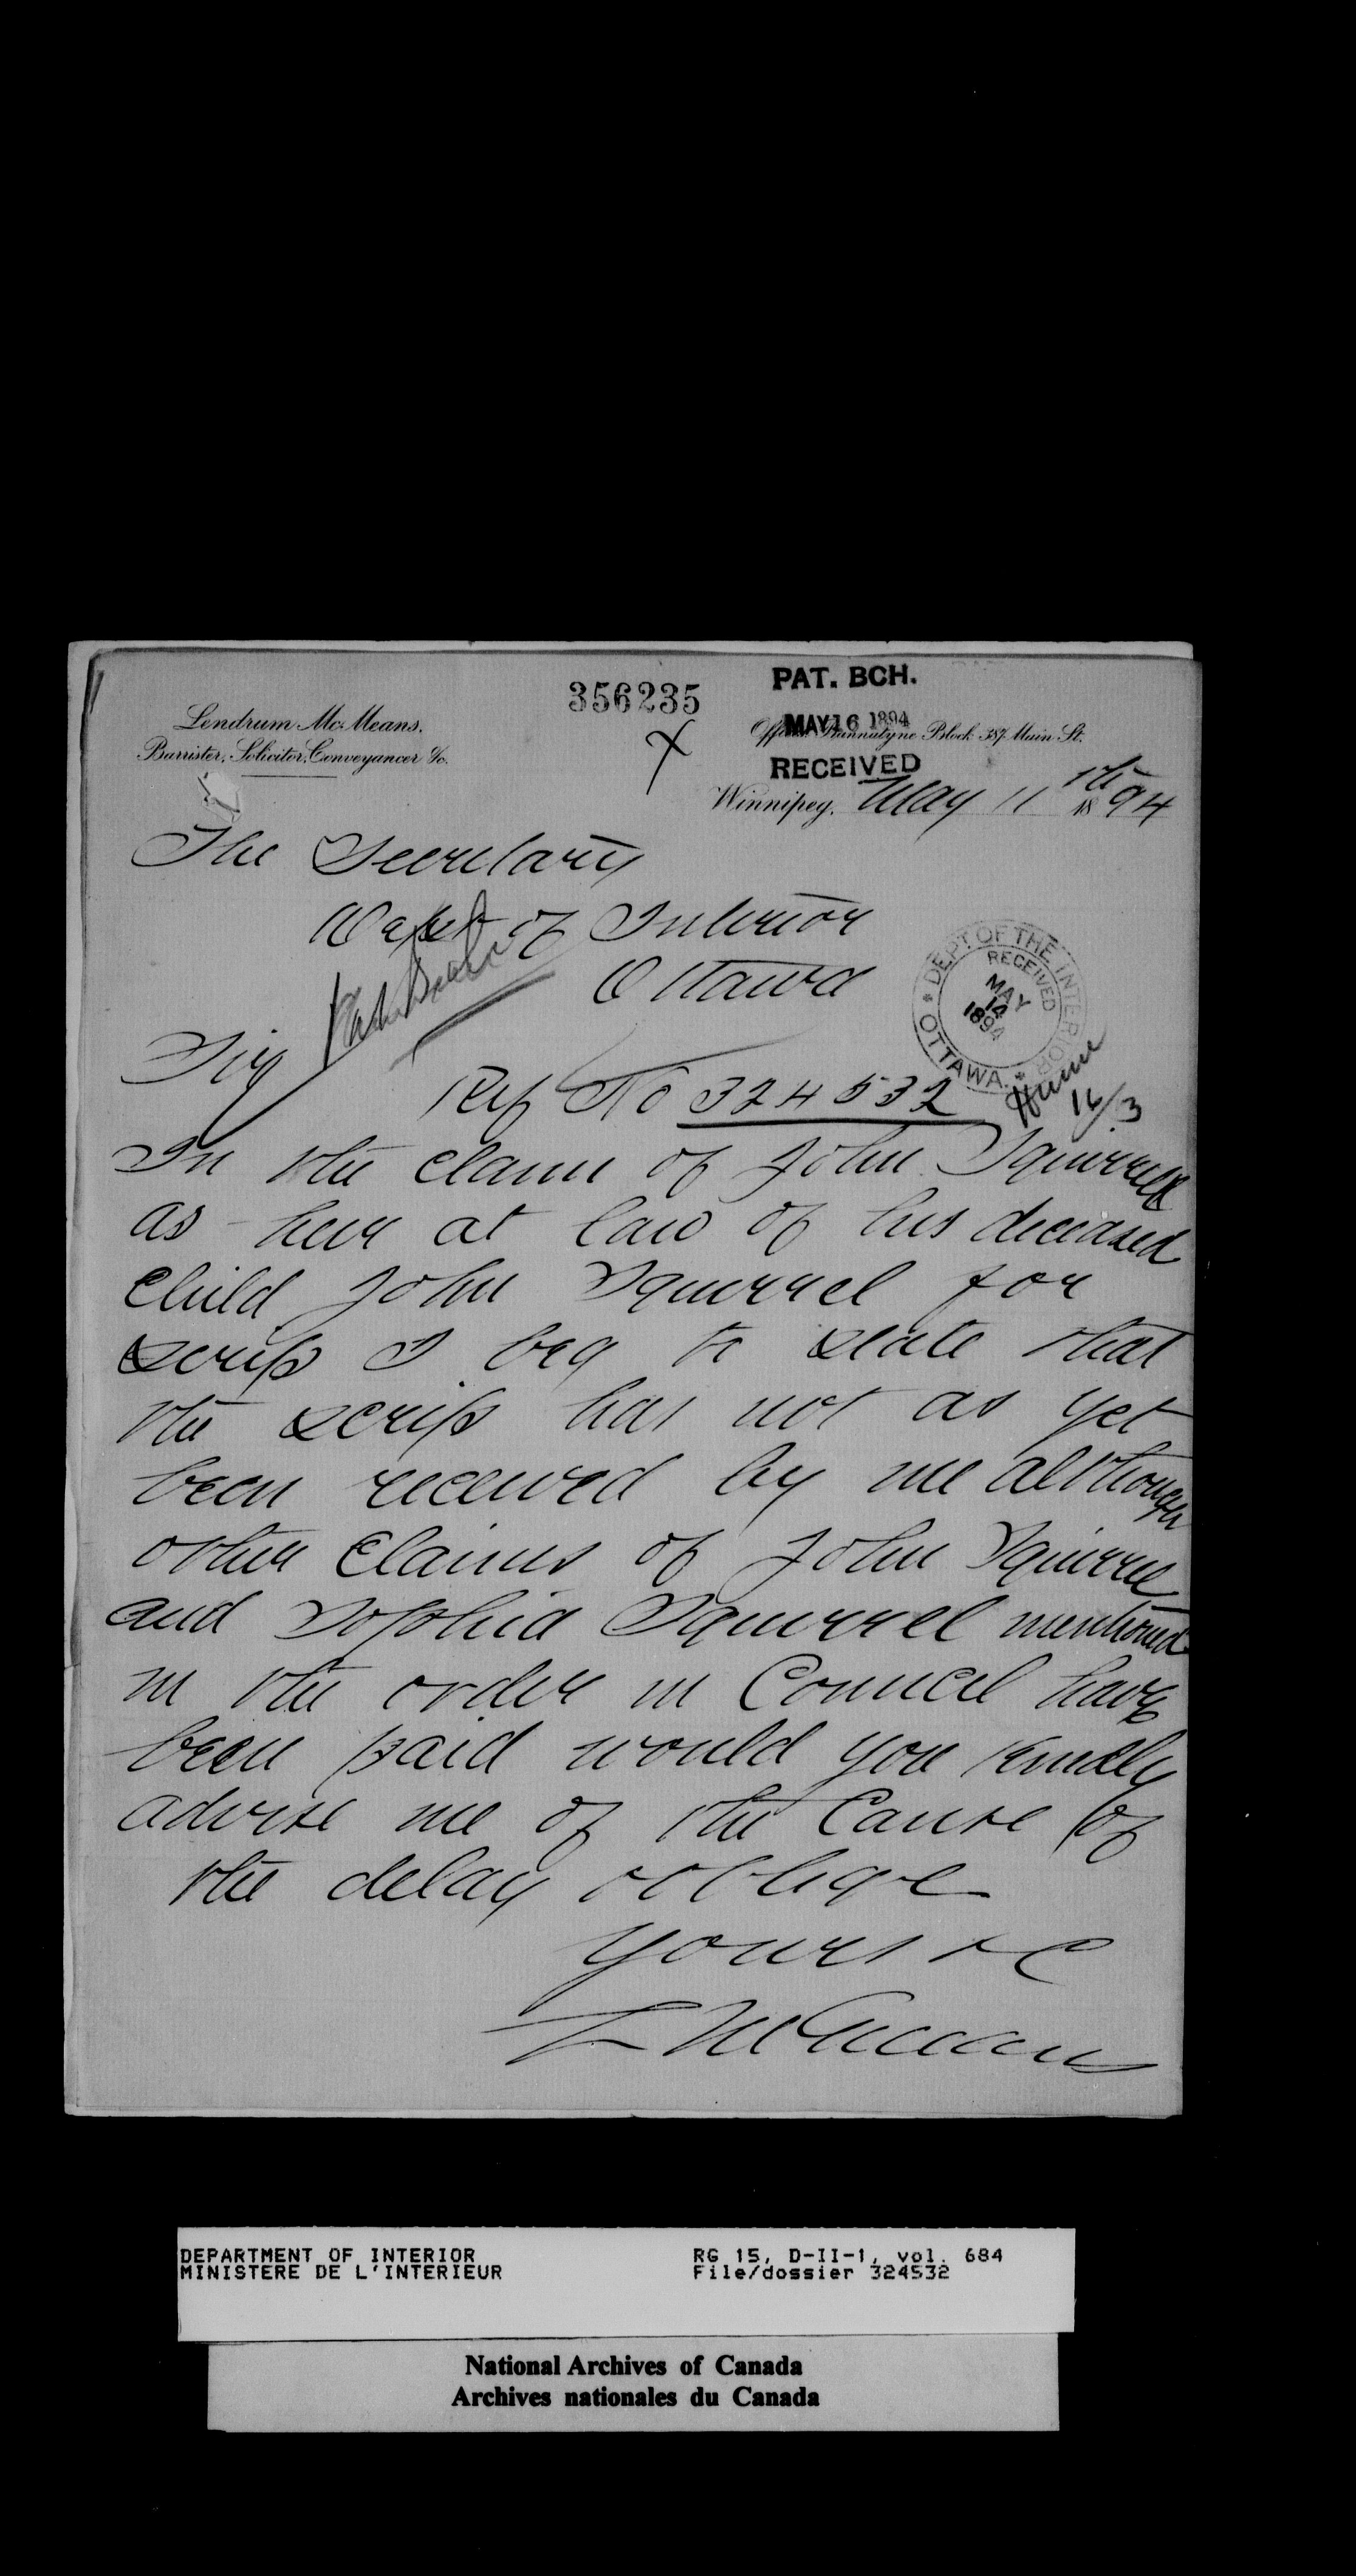 356235
PAT. BCH.
MAY 16 1894
RECEIVED
Lendrum Mc.Means,
Barrister, Solicitor, Conveyancer &c.
Office Bannatyne Block 387 Main St.
Winnipeg, May 11th 1894
The Secretary
Dept of Interior
Ottawa
DEPT OF THE INTERIOR
RECEIVED
MAY
14
1894
OTTAWA.
Sir
Ref No 324532
16/3
In the claim of John Squirrel
as heir at law of his deceased
Child John Squirrel for
scrip I beg to state that
the scrip has not as yet
been received by me although
other Claims of John Squirrel
and Sophia Squirrel mentioned
in the order in Council have
been paid would you kindly
advise me of the Cause of
the delay & oblige
yours &c
L McMeans
DEPARTMENT OF INTERIOR
MINISTERE DE L'INTERIEUR
RG 15, D-II-1, vol. 684
File/dossier 324532
National Archives of Canada
Archives nationales du Canada